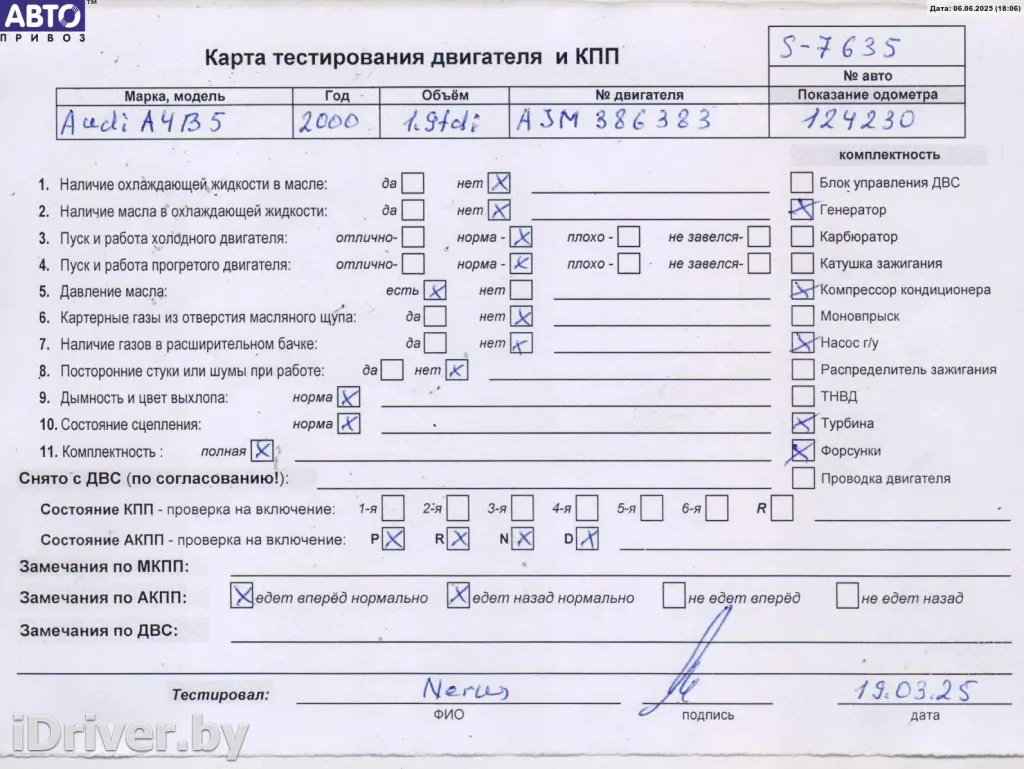 Дата: 06.06.2025 (18:06)
АВТО™
ПРИВОЗ
Карта тестирования двигателя и КПП
S-7635
№ авто
Марка, модель Год Объём № двигателя Показание одометра
Audi A4B5 2000 1.9tdi AJM 386383 124230
комплектность
1. Наличие охлаждающей жидкости в масле: да нет X
Блок управления ДВС
2. Наличие масла в охлаждающей жидкости: да нет X
X Генератор
3. Пуск и работа холодного двигателя: отлично- норма - X плохо - не завелся-
Карбюратор
4. Пуск и работа прогретого двигателя: отлично- норма - X плохо - не завелся-
Катушка зажигания
5. Давление масла: есть X нет
X Компрессор кондиционера
6. Картерные газы из отверстия масляного щупа: да нет X
Моновпрыск
7. Наличие газов в расширительном бачке: да нет X
X Насос г/у
8. Посторонние стуки или шумы при работе: да нет X
Распределитель зажигания
9. Дымность и цвет выхлопа: норма X
ТНВД
10. Состояние сцепления: норма X
X Турбина
11. Комплектность : полная X
X Форсунки
Снято с ДВС (по согласованию!):
Проводка двигателя
Состояние КПП - проверка на включение: 1-я 2-я 3-я 4-я 5-я 6-я R
Состояние АКПП - проверка на включение: P X R X N X D X
Замечания по МКПП:
Замечания по АКПП: X едет вперёд нормально X едет назад нормально не едет вперёд не едет назад
Замечания по ДВС:
Тестировал: Nerus 19.03.25
ФИО подпись дата
iDriver.by